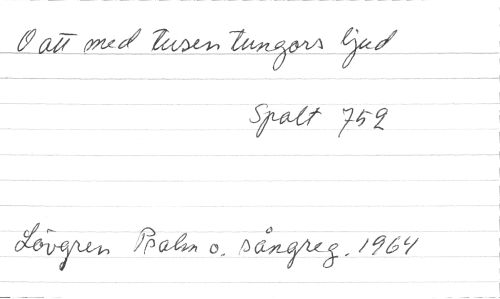 O att med tusen tungors ljud
Spalt 752
Lövgren Psalm o. sångreg. 1964